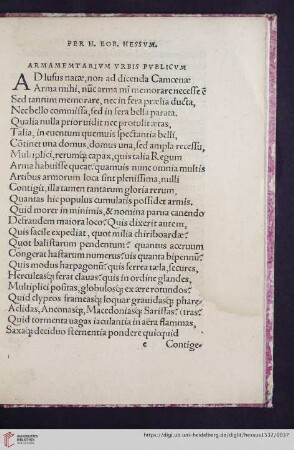 PER H. EOB. HESSVM.
ARMAMENTARIVM VRBIS PVBLICVM
AD lusus natæ, non ad dicenda Camœnæ
Arma mihi, nūc arma mī memorare necesse ē
Sed tantum memorare, nec in fera prælia ducta,
Nec bello commissa, sed in fera bella parata.
Qualia nulla prior uidit nec protulit ætas,
Talia, in euentum quemuis spectantia belli,
Cōtinet una domus, domus una, sed ampla recessu,
Multiplici, rerumq; capax, quis talia Regum
Arma habuisse queat? quamuis nunc omnia multis
Artibus armorum loca sint plenissima, nulli
Contigit, illa tamen tantarum gloria rerum,
Quantas hic populus cumulatis possidet armis.
Quid moror in minimis, & nomina parua canendo
Defraudem maiora loco? Quis dixerit autem,
Quis facile expediat, quot milia chiriboardæ?
Quot balistarum pendentum? quantus aceruum
Congerat hastarum numerus? uis quanta bipennū?
Quis modus harpagonū? quis ferrea tæla, secures,
Herculeasq; ferat clauas? quis in ordine glandes,
Multiplici positas, globulosq; ex ære rotundos?
Quid clypeos frameasq; loquar grauidasq; phare-
Aclidas, Anconasq;, Macedoniasq; Sarissas? (tras?
Quid tormenta uagas iaculantia in aëra flammas,
Saxaq; deciduo sternentia pondere quicquid
e Contige-
https://digi.ub.uni-heidelberg.de/diglit/hessus1532/0037